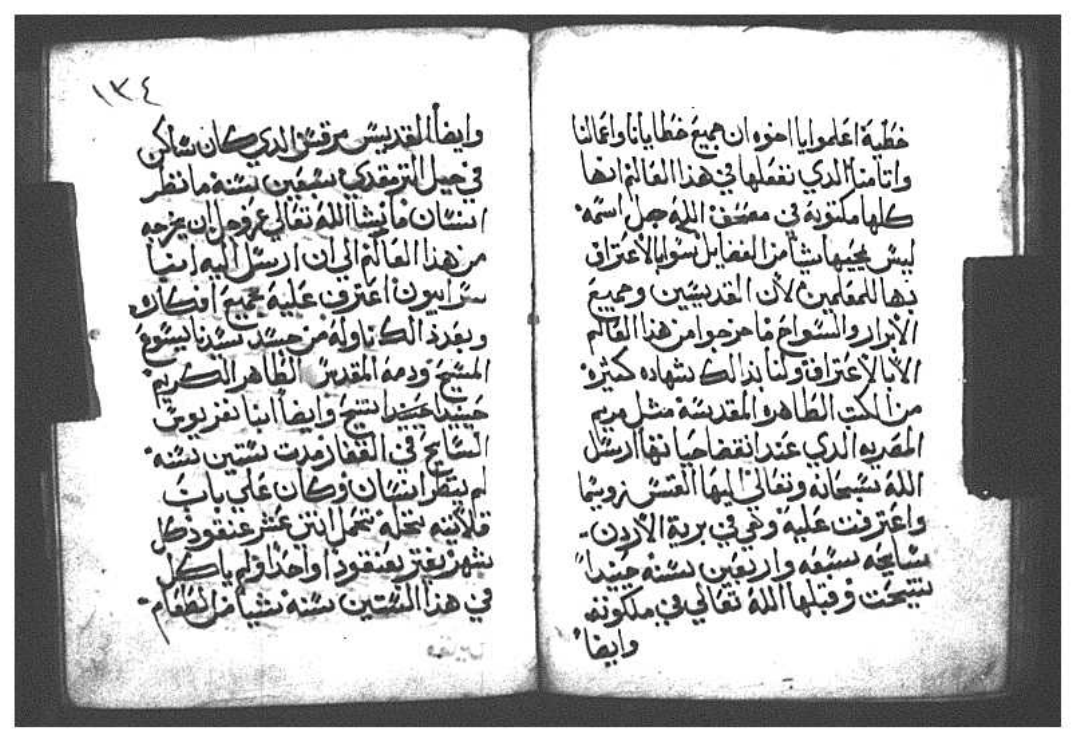 خطية اعلموا يا اخوه ان جميع خطايانا واعمالنا
واتامنا الدي نفعلها في هذا العالم انها
كلها مكتوبة في مصحف الله جل اسمه
ليس يمحيها شيا من الفضايل سوا بالاعتراف
بها للمعلمين لان القديسين وجميع
الابرار والسواح ما خرجوا من هذا العالم
الا بالاعتراف ولنا بدالك شهاده كثيرة
من الكتب الطاهرة المقدسة مثل مريم
المصريه الدي عند انقضا حياتها ارسل
الله سبحانه وتعالى اليها القس زوسيما
واعترفت عليه وهي في برية الاردن
سايحه سبعه واربعين سنه حينيدا
تنيحت وقبلها الله تعالي في ملكوته
وايضا
١٣٤
وايضا القديس مرقس الدي كان ساكن
في جبل الترمقدي تسعين سنة ما نظر
انسان فما يشا الله تعالي عز وجل ان يخرجه
من هذا العالم الي ان ارسل اليه انبا
سرابيون اعترف عليه بجميع افكاره
وبعد دالك ناوله من جسد سيدنا يسوع
المسيح ودمه المقدس الطاهر الكريم
حينيدا تنيح وايضا ابنا نفريوس
السايح في القفار مدت ستين سنه
لم ينظر انسان وكان علي باب
قلايته نخله تحمل اتني عشر عنقود كل
شهر يفتر بعنقودا واحدا ولم ياكل
في هذا الستين سنة شيا من الطعام